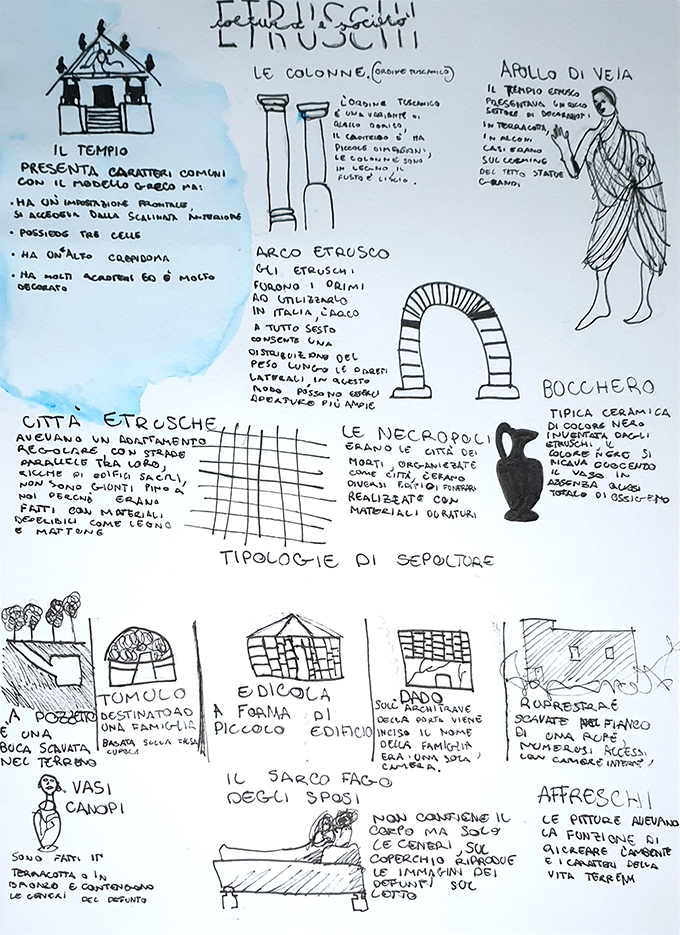 ETRUSCHI
cultura e società
IL TEMPIO
PRESENTA CARATTERI COMUNI
CON IL MODELLO GRECO MA:
• HA UN'IMPOSTAZIONE FRONTALE,
SI ACCEDEVA DALLA SCALINATA ANTERIORE
• POSSIEDE TRE CELLE
• HA UN'ALTO CREPIDOMA
• HA MOLTI ACROTERI ED È MOLTO
DECORATO
LE COLONNE. (ORDINE TUSCANICO)
L'ORDINE TUSCANICO
È UNA VARIANTE DI
QUELLO DORICO,
IL CAPITELLO È HA
PICCOLE DIMENSIONI,
LE COLONNE SONO
IN LEGNO, IL
FUSTO È LISCIO.
APOLLO DI VEIA
IL TEMPIO ETRUSCO
PRESENTAVA UN RICCO
SETTORE DI DECORAZIONI
IN TERRACOTTA,
IN ALCUNI
CASI ERANO
SUL COLMINE
DEL TETTO STATUE
GRANDI
ARCO ETRUSCO
GLI ETRUSCHI
FURONO I PRIMI
AD UTILIZZARLO
IN ITALIA, L'ARCO
A TUTTO SESTO
CONSENTE UNA
DISTRIBUIZIONE DEL
PESO LUNGO LE PARETI
LATERALI, IN QUESTO
MODO POSSONO ESSERCI
APERTURE PIÙ AMPIE
CITTÀ ETRUSCHE
AVEVANO UN ADATTAMENTO
REGOLARE CON STRADE
PARALLELE TRA LORO,
RICCHE DI EDIFICI SACRI,
NON SONO GIUNTI FINO A
NOI PERCHÈ ERANO
FATTI CON MATERIALI
DEPERIBILI COME LEGNO
E MATTONE
LE NECROPOLI
ERANO LE CITTÀ DEI
MORTI, ORGANIZZATE
COME CITTÀ, C'ERANO
DIVERSI EDIFICI FUNERARI
REALIZZATE CON
MATERIALI DURATURI
BUCCHERO
TIPICA CERAMICA
DI COLORE NERO
INVENTATA DAGLI
ETRUSCHI, IL
COLORE NERO SI
RICAVA CUOCENDO
IL VASO IN
ASSENZA QUASI
TOTALE DI OSSIGENO
TIPOLOGIE DI SEPOLTURE
A POZZETTO
È UNA
BUCA SCAVATA
NEL TERRENO
TUMULO
DESTINATO AD
UNA FAMIGLIA
BASATA SULLA FALSA
CUPOLA
EDICOLA
A FORMA DI
PICCOLO EDIFICIO
DADO
SULL'ARCHITRAVE
DELLA PORTA VIENE
INCISO IL NOME
DELLA FAMIGLIA
ERA UNA SOLA
CAMERA.
RUPRESTRE
SCAVATE NEL FIANCO
DI UNA RUPE,
NUMEROSI ACCESSI
CON CAMERE INTERNE,
VASI
CANOPI
SONO FATTI IN
TERRACOTTA O IN
BRONZO E CONTENGONO
LE CENERI DEL DEFUNTO
IL SARCO FAGO
DEGLI SPOSI
NON CONTIENE IL
CORPO MA SOLO
LE CENERI, SUL
COPERCHIO RIPRODUCE
LE IMMAGINI DEI
DEFUNTI SUL
LETTO
AFFRESCHI
LE PITTURE AVEVANO
LA FUNZIONE DI
RICREARE L'AMBIENTE
E I CARATTERI DELLA
VITA TERRENA